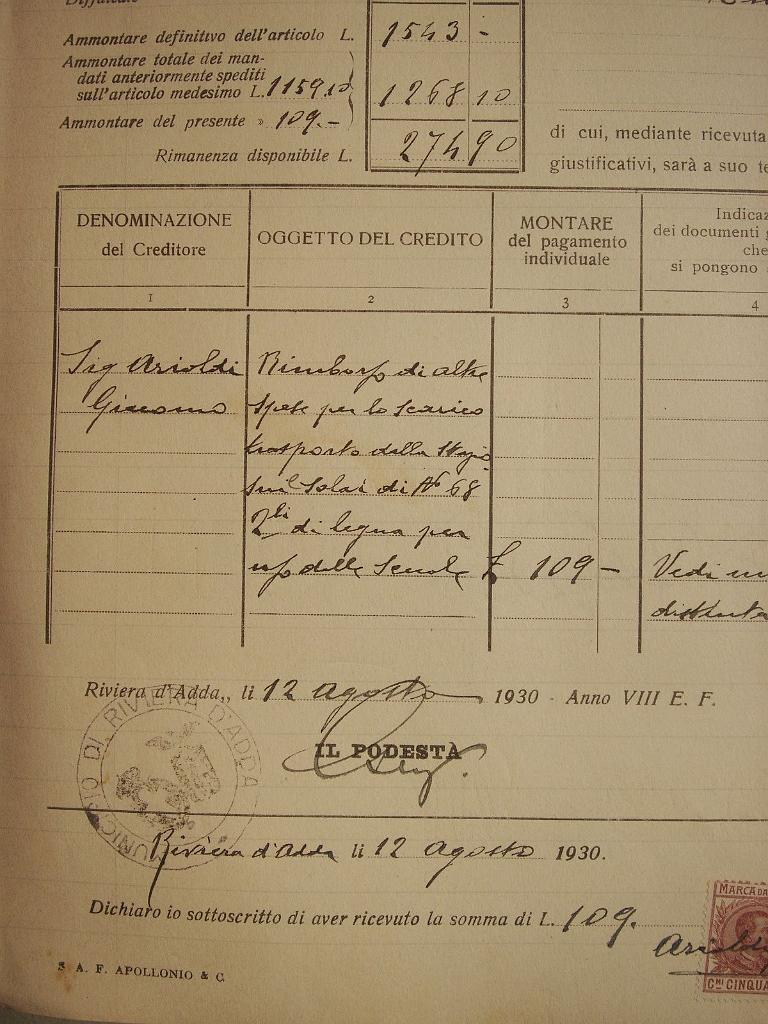 Ammontare definitivo dell'articolo L. 1543 -
Ammontare totale dei man-
dati anteriormente spediti
sull'articolo medesimo L. 1159.10
1268 10
Ammontare del presente » 109.-
Rimanenza disponibile L. 274 90
di cui, mediante ricevuta
giustificativi, sarà a suo te
DENOMINAZIONE
del Creditore
OGGETTO DEL CREDITO
MONTARE
del pagamento
individuale
Indicaz
dei documenti g
che
si pongono
1 2 3 4
Sig Arioldi
Giacomo
Rimborso di altre
spese per lo scarico
trasporto dalla Stazio
sui Solai di N° 68
Qli di legna per
uso delle Scuole £ 109 -
Vedi un
distinta
Riviera d'Adda,, li 12 agosto 1930 - Anno VIII E. F.
IL PODESTÀ
MUNICIPIO DI RIVIERA D'ADDA
Riviera d'Adda li 12 agosto 1930.
Dichiaro io sottoscritto di aver ricevuto la somma di L. 109.
MARCA DA
CMI CINQUA
S. A. F. APOLLONIO & C.